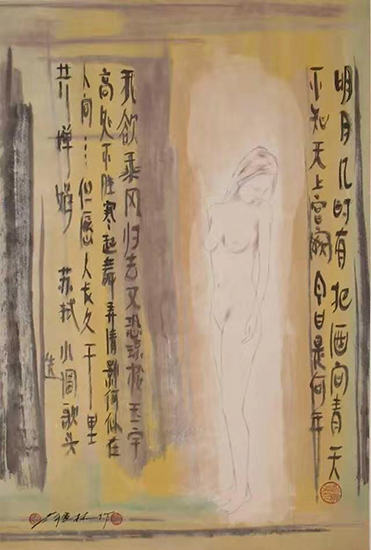 明月几时有把酒向青天
不知天上宫阙今日是何年
我欲乘风归去又恐琼楼玉宇
高处不胜寒起舞弄情影何似在
人间…但愿人长久千里
共婵娟 苏轼 水调歌头